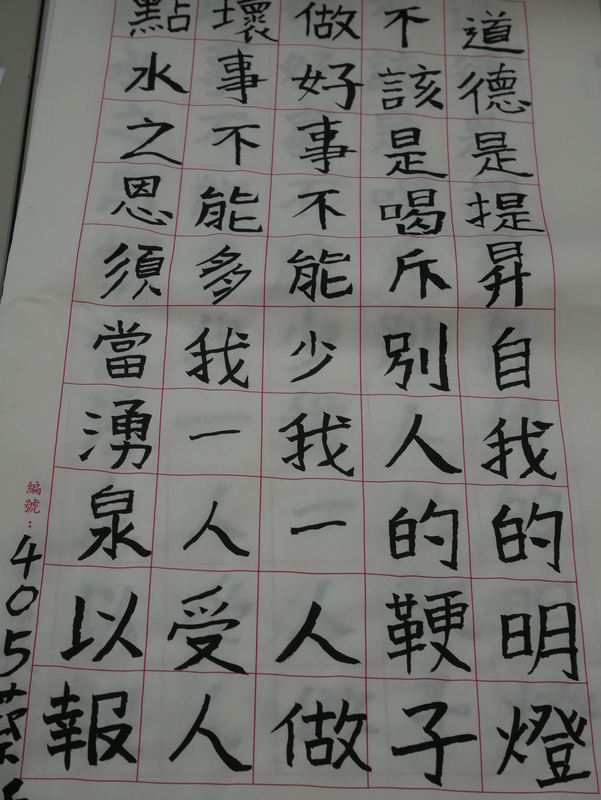 道德是提昇自我的明燈
不該是喝斥別人的鞭子
做好事不能少我一人做
壞事不能多我一人受人
點水之恩須當湧泉以報
編號：405蔡